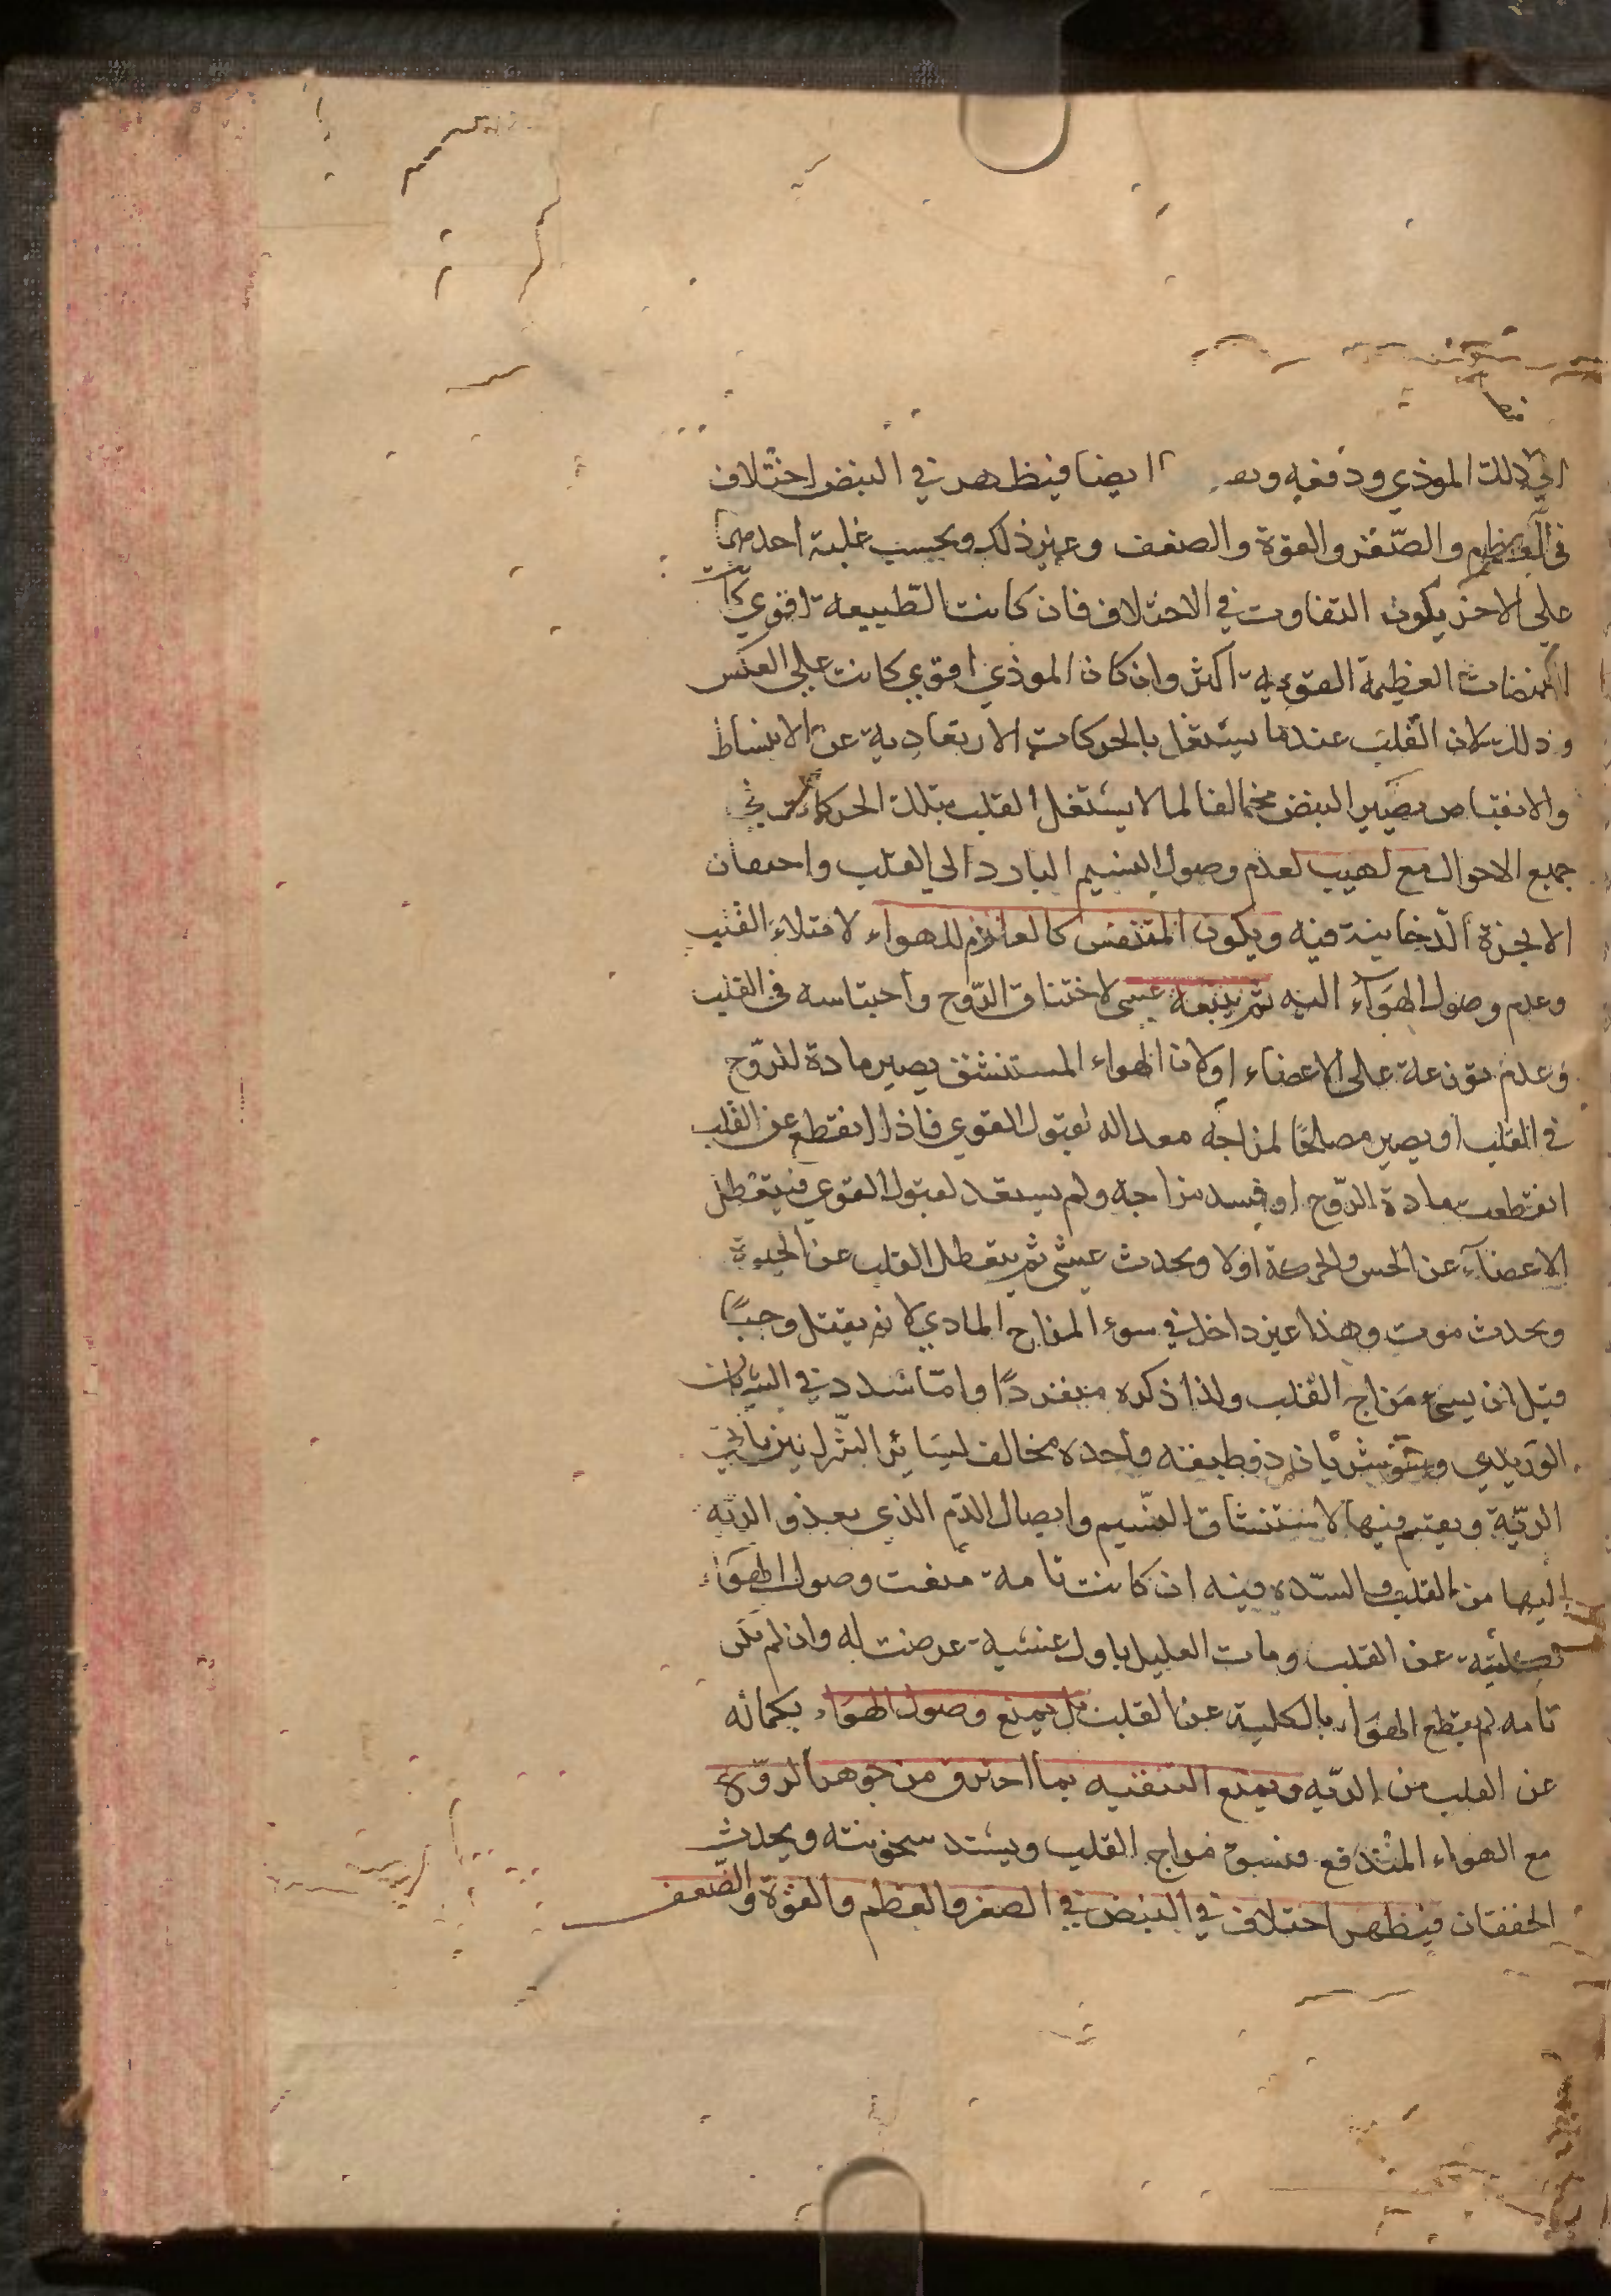 الى ذلك الموذي ودفعه ايضا فيظهر في النبض اختلاف
في العظم والصّغر والقوة والضعف وغير ذلك وبحسب غلبة احدهما
على الاخر يكون التفاوت في الاختلاف فان كانت الطّبيعة اقوي كانت
النبضات العظيمة القوية اكثر وان كان الموذي اقوي كانت علي العكس
وذلك لان القلب عندما يشتغل بالحركات الارتعادية عن الانبساط
والانقباض يصير النبض مخالفا لما لا يشتغل القلب بتلك الحركات في
جميع الاحوال مع لهيب لعدم وصول النسيم البارد الي القلب واحتقان
الابخرة الدّخانية فيه ويكون المتنفس كالعادم للهواء لامتلاء القلب
وعدم وصول الهواء اليه ثم يتبعه غشى لاختناق الرّوح واحتباسه في القلب
وعدم توزعه على الاعضاء اولان الهواء المستنشق يصير مادة للرّوح
في القلب او يصير مصلحًا لمزاجه معداله لقبول القوي فاذا انقطع عن القلب
انقطعت مادة الرّوح او فسد مزاجه ولم يستعد لقبول القوي فيتعطل
الاعضآء عن الحس والحركة اولا ويحدث غشى ثم يتعطل القلب عن الحيوة
ويحدث موت وهذا غير داخل في سوء المزاج المادي لانه يقتل وحيًا
قبل ان يسيء مزاج القلب ولذا ذكره منفردًا وامّا سدد في الشريان
الوريدي وهو شريان ذو طبقة واحدة مخالف لسائر الشّرايين ياتي
الريّة ويقسم فيها لاستنشاق النّسيم وايصال الدّم الذي يغذو الريه
اليها من القلب والسّده فيه ان كانت تامة منعت وصول الهواء
بكليّته عن القلب ومات العليل باول غشية عرضت له وان لم تكن
تامه لم يقطع الهواء بالكلية عن القلب بل يمنع وصول الهواء بكماله
عن القلب من الريّه ويمنع التنقيه بما احترق من جوهر الرّوح
مع الهواء المندفع فيسوء مزاج القلب ويشتد سخونته ويحدث
الخفقان فيظهر اختلاف في النبض في الصغر والعظم والقوّة والضّعف